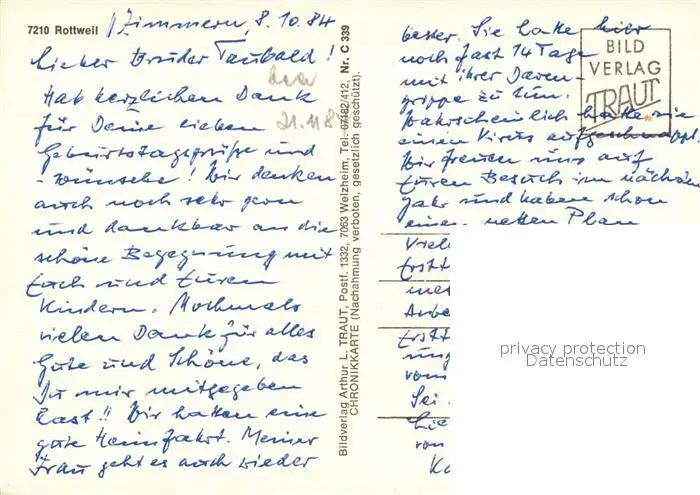 7210 Rottweil
Zimmern, 8.10.84
Lieber Bruder Taubald!
Hab herzlichen Dank
für Deine lieben
Geburtstagsgrüße und
-wünsche! Wir denken
auch noch sehr gern
und dankbar an die
schöne Begegnung mit
Euch und Euren
Kindern. Nochmals
vielen Dank für alles
Gute und Schöne, das
Du mir mitgegeben
hast!! Wir hatten eine
gute Heimfahrt. Meiner
Frau geht es auch wieder
21.11.84
Bildverlag Arthur L. TRAUT, Postf. 1332, 7063 Welzheim, Tel. 07182/412, Nr. C 339
CHRONIKKARTE (Nachahmung verboten, gesetzlich geschützt).
BILD
VERLAG
TRAUT
besser. Sie hatte hier
noch fast 14 Tage
mit ihrer Darm-
grippe zu tun.
Wahrscheinlich hatte sie
einen Virus aufgeschnappt.
Wir freuen uns auf
Euren Besuch im nächsten
Jahr und haben schon
einen netten Plan
Viel
Erstt
mes
Arbe
Erstt
ung
vom
Sei
Lie
von
privacy protection
Datenschutz